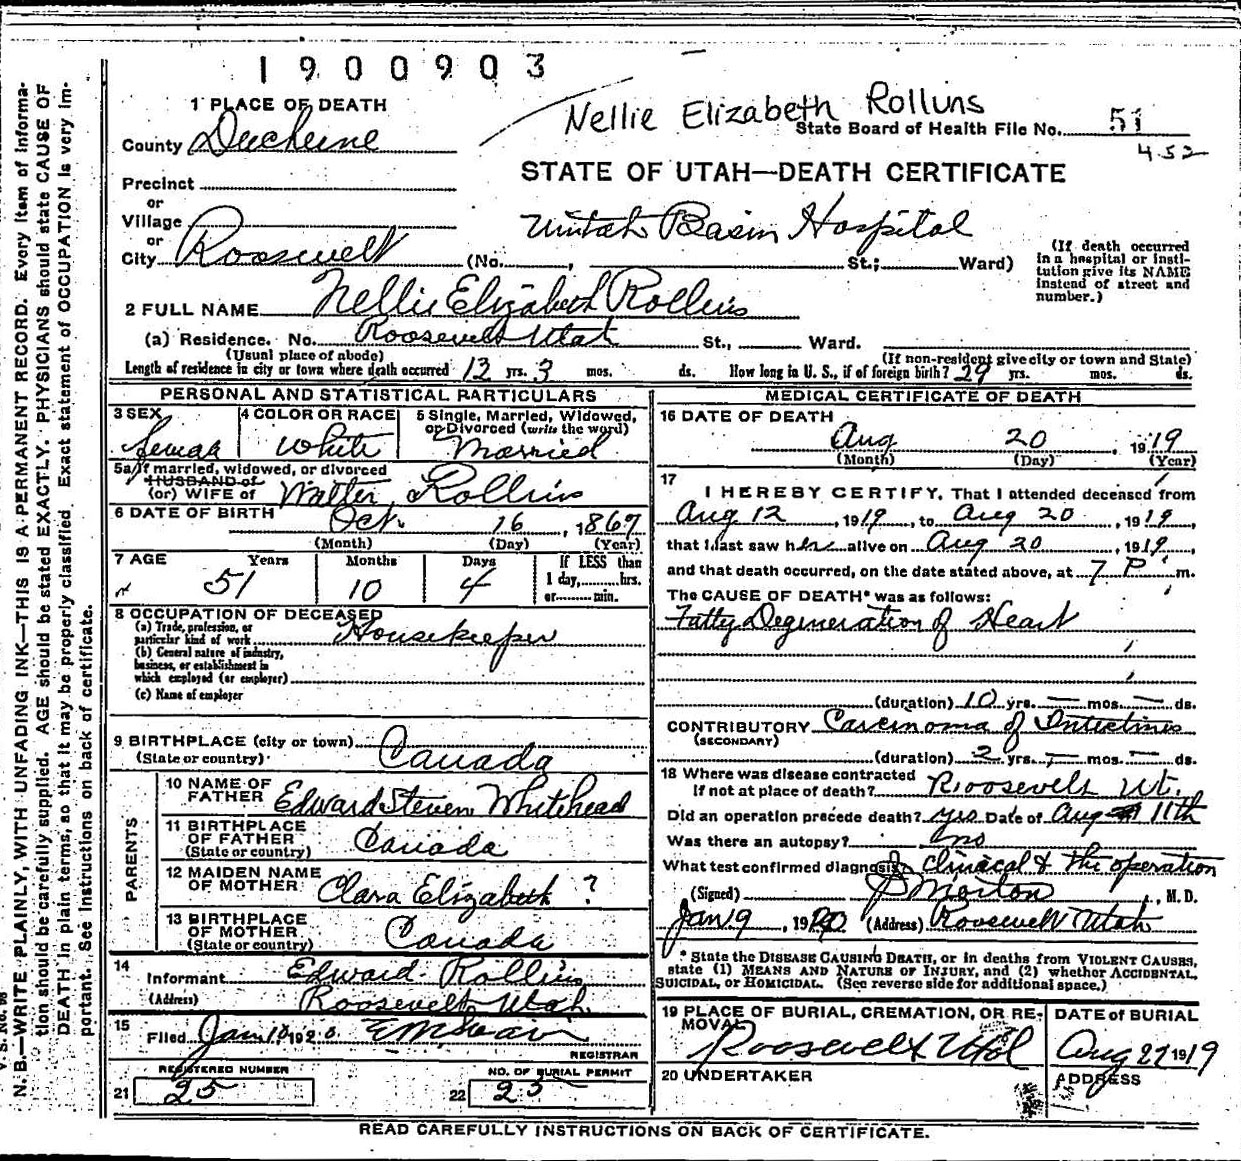 1900903
Nellie Elizabeth Rollins
1 PLACE OF DEATH
State Board of Health File No. 51
452
County Duchesne
STATE OF UTAH—DEATH CERTIFICATE
Precinct
or
Village
Uintah Basin Hospital
or
City Roosevelt (No. , St.; Ward)
(If death occurred in a hospital or institution give its NAME instead of street and number.)
2 FULL NAME Nellie Elizabeth Rollins
(a) Residence. No. Roosevelt Utah St., Ward.
(Usual place of abode) (If non-resident give city or town and State)
Length of residence in city or town where death occurred 12 yrs. 3 mos. ds. How long in U. S., if of foreign birth? 29 yrs. mos. ds.
PERSONAL AND STATISTICAL PARTICULARS
3 SEX 4 COLOR OR RACE 5 Single, Married, Widowed,
or Divorced (write the word)
Female White Married
5a If married, widowed, or divorced
HUSBAND of
(or) WIFE of Walter Rollins
6 DATE OF BIRTH Oct. 16, 1867
(Month) (Day) (Year)
7 AGE Years Months Days If LESS than
51 10 4 1 day, hrs.
or min.
8 OCCUPATION OF DECEASED
(a) Trade, profession, or
particular kind of work Housekeeper
(b) General nature of industry,
business, or establishment in
which employed (or employer)
(c) Name of employer
9 BIRTHPLACE (city or town)
(State or country) Canada
PARENTS
10 NAME OF
FATHER Edward Steven Whitehead
11 BIRTHPLACE
OF FATHER
(State or country) Canada
12 MAIDEN NAME
OF MOTHER Clara Elizabeth ?
13 BIRTHPLACE
OF MOTHER
(State or country) Canada
14
Informant Edward Rollins
(Address) Roosevelt Utah
15
Filed Jan 10 1920
REGISTRAR
REGISTERED NUMBER NO. OF BURIAL PERMIT
21 25 22 25
MEDICAL CERTIFICATE OF DEATH
16 DATE OF DEATH
Aug 20, 1919
(Month) (Day) (Year)
17
I HEREBY CERTIFY, That I attended deceased from
Aug 12, 1919, to Aug 20, 1919,
that I last saw her alive on Aug 20, 1919,
and that death occurred, on the date stated above, at 7 P. m.
The CAUSE OF DEATH* was as follows:
Fatty Degeneration of Heart
(duration) 10 yrs. — mos. — ds.
CONTRIBUTORY Carcinoma of Intestines
(SECONDARY)
(duration) 2 yrs. — mos. — ds.
18 Where was disease contracted
If not at place of death? Roosevelt Ut.
Did an operation precede death? yes Date of Aug 11th
Was there an autopsy? no
What test confirmed diagnosis Clinical & the operation
(Signed) J Morton, M. D.
Jan 9, 1920 (Address) Roosevelt Utah
* State the DISEASE CAUSING DEATH, or in deaths from VIOLENT CAUSES,
state (1) MEANS AND NATURE OF INJURY, and (2) whether ACCIDENTAL,
SUICIDAL, or HOMICIDAL. (See reverse side for additional space.)
19 PLACE OF BURIAL, CREMATION, OR RE-
MOVAL
DATE OF BURIAL
Roosevelt Utah Aug 27 1919
20 UNDERTAKER ADDRESS
READ CAREFULLY INSTRUCTIONS ON BACK OF CERTIFICATE.
V. S. No. 98
N. B.—WRITE PLAINLY, WITH UNFADING INK—THIS IS A PERMANENT RECORD. Every item of informa-
tion should be carefully supplied. AGE should be stated EXACTLY. PHYSICIANS should state CAUSE OF
DEATH in plain terms, so that it may be properly classified. Exact statement of OCCUPATION is very im-
portant. See instructions on back of certificate.